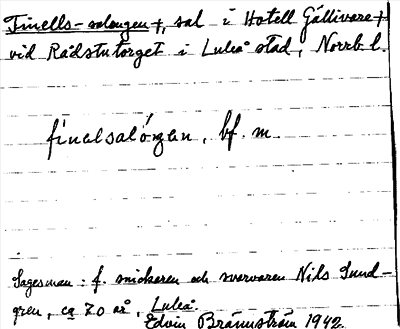 Finells-salongen †, sal i Hotell Gällivare †
vid Rådstutorget i Luleå stad, Norrb. l.
finalsalóŋən, bf. m.
Sagesman: f. snickaren och svarvaren Nils Sund-
gren, ca 70 år, Luleå.
Edvin Brännström 1942